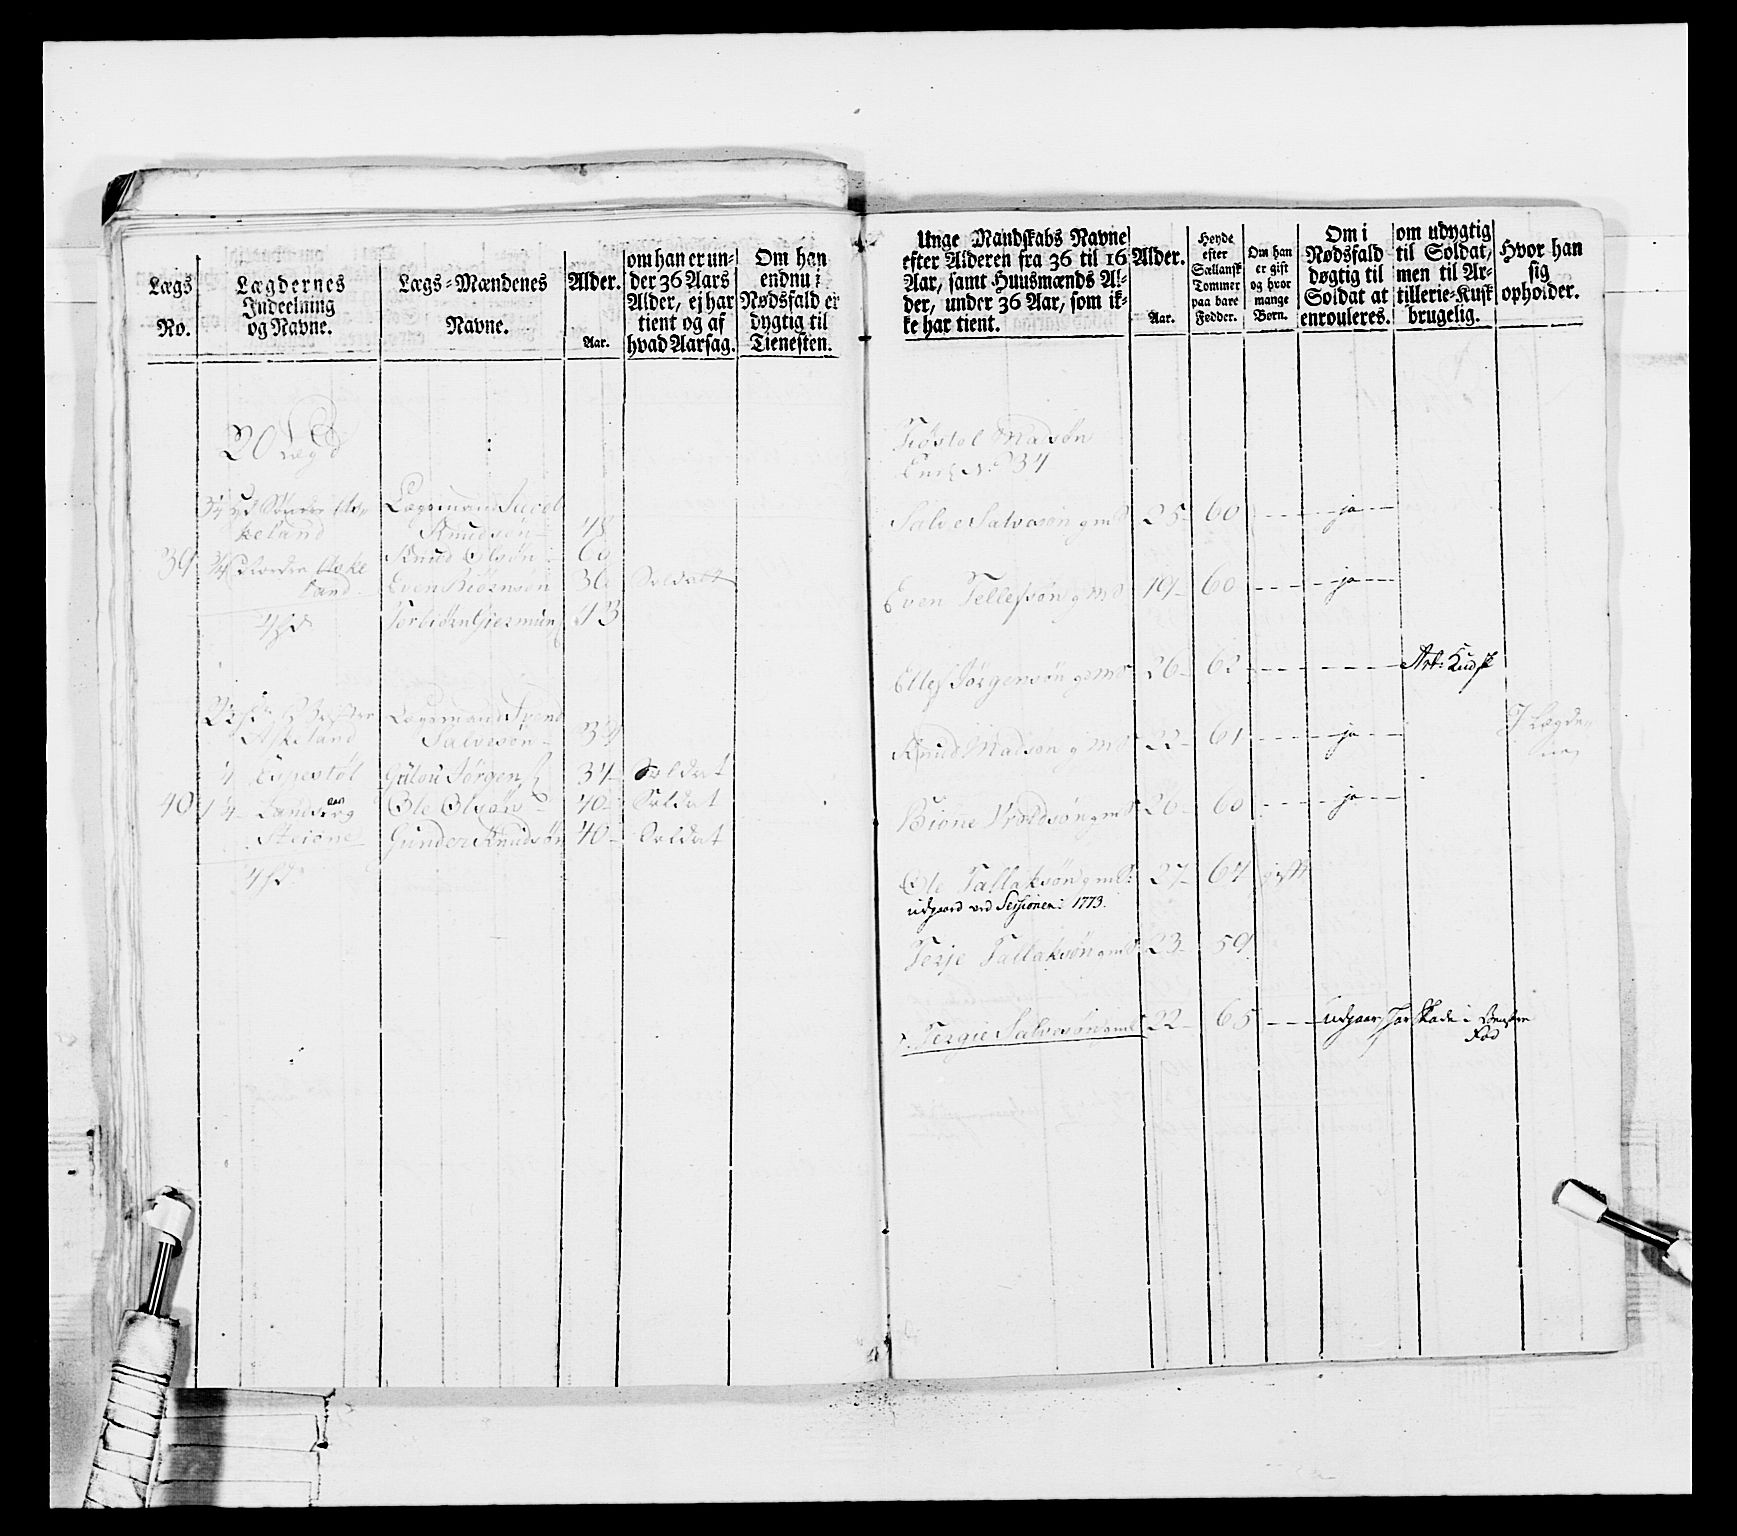 Lægs
No.
Lægdernes
Indeelning
og Navne.
Lægs-Mændenes
Navne.
Alder.
Aar.
om han er un-
der 36 Aars
Alder, ej har
tient og af
hvad Aarsag.
Om han
endnu i
Nødsfald er
dygtig til
Tienesten.
20 Lægd
Lægsmand Jacob
Knudsøn 48
39
Knud Olsøn 60
Even Biørnsøn 36 Soldatt
Torbiørn Giermun 43
Lægsmand Svend
Askeland Salvesøn 34
4 Espestøl Gulou Jørgen 34 Soldat
40 4 Ole Olsøn 40 Soldat
Gunder Knudsøn 40 Soldat
Unge Mandskabs Navne
efter Alderen fra 36 til 16
Aar, samt Huusmænds Al-
der, under 36 Aar, som ik-
ke har tient.
Alder.
Aar.
Høyde
efter
Siællansk
Tommer
paa bare
Fødder.
Om han
er gift
og hvor
mange
Børn.
Om i
Nødsfald
døgtig til
Soldat at
enrouleres.
om udygtig
til Soldat,
men til Ar-
tillerie-Kusk
brugelig.
Hvor han
sig
opholder.
Tiøstol Madsøn
No 34
Salve Salvesøn gmd 25 60 ja
Even Tellefsøn gmd 19 60 ja
Ellef Jørgensøn gmd 26 62 Art: Kudsk
Knud Madsøn gmd 22 61 ja I Lægde
Biørne gmd 26 60 ja
Ole Tallaksøn gmd: 27 64 gift
udgaard ved Sessionen: 1773.
Terje Tallaksøn gmd 23 59
Tergie Salvesøn gmd 22 65 udgaar, har Skade i Venstre
Fod